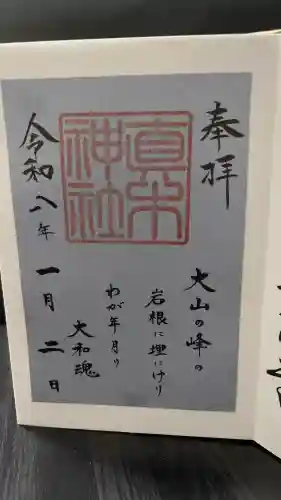 奉拝
真木神社
大山の峰の
岩根に埋にけり
わが年月の
大和魂
令和八年 一月 二日